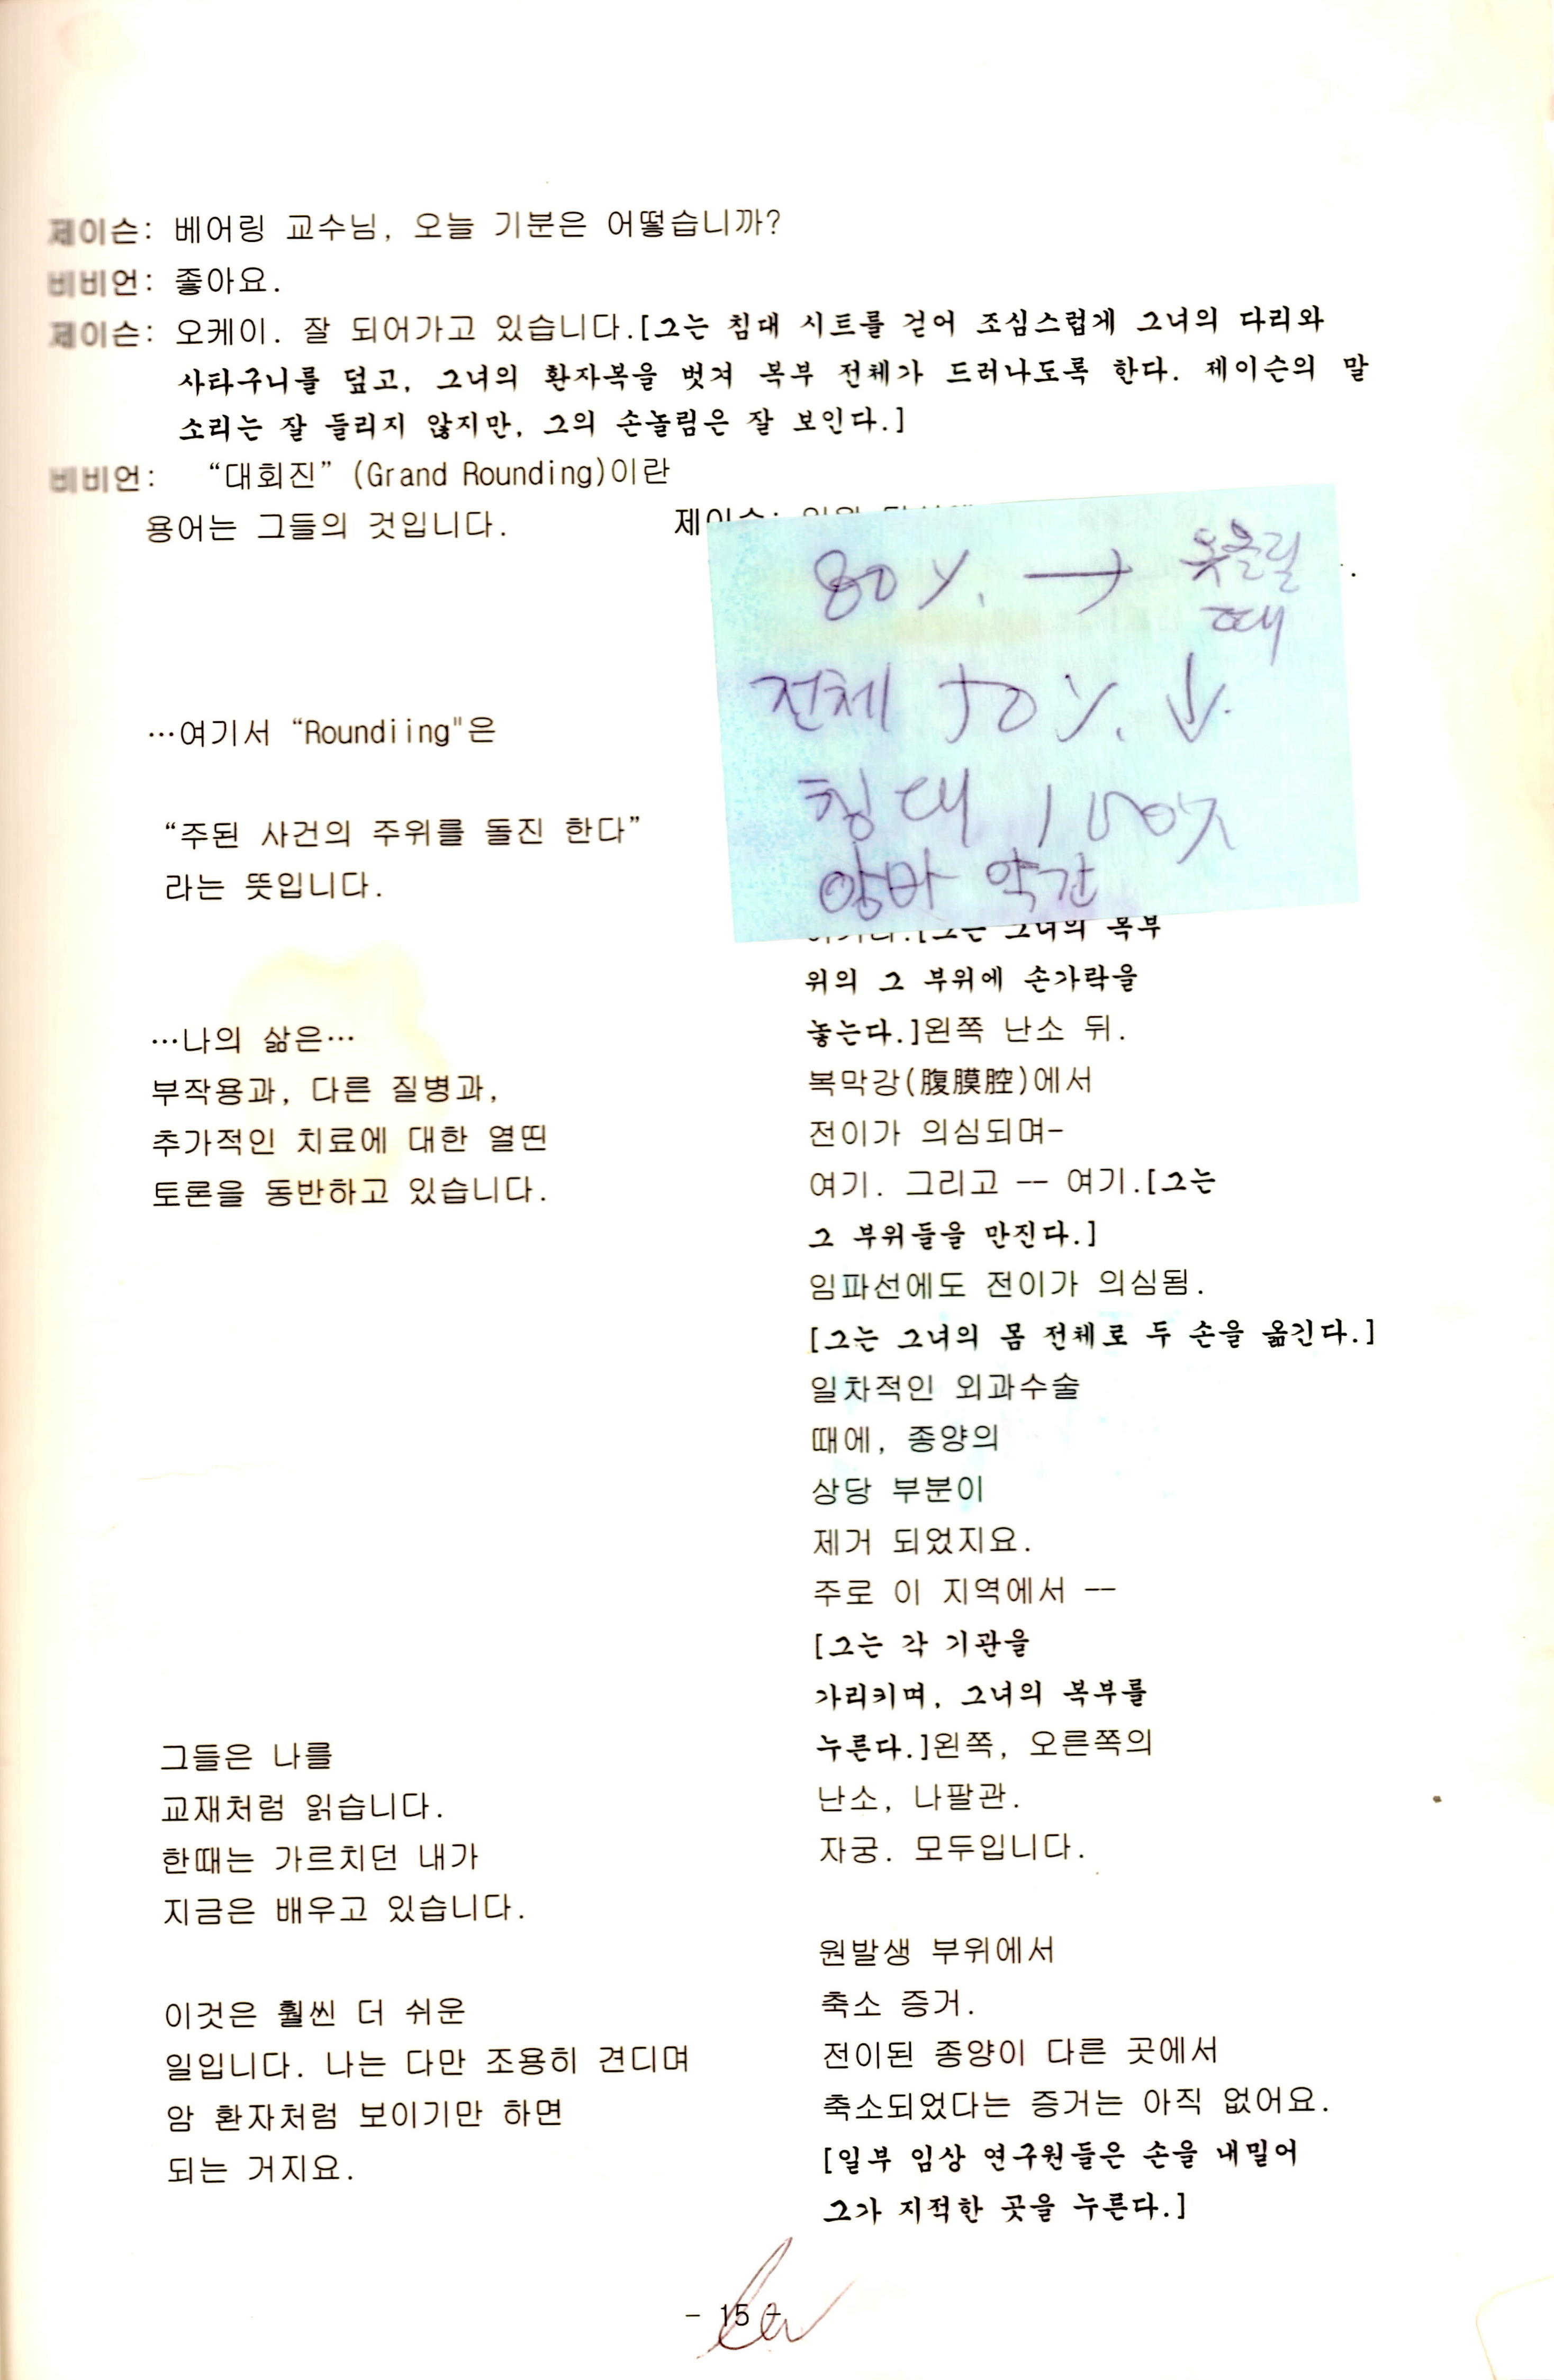 제이슨: 베어링 교수님, 오늘 기분은 어떻습니까?
비비언: 좋아요.
제이슨: 오케이. 잘 되어가고 있습니다.[그는 침대 시트를 걷어 조심스럽게 그녀의 다리와
사타구니를 덮고, 그녀의 환자복을 벗겨 복부 전체가 드러나도록 한다. 제이슨의 말
소리는 잘 들리지 않지만, 그의 손놀림은 잘 보인다.]
비비언: “대회진” (Grand Rounding)이란
용어는 그들의 것입니다.
…여기서 “Roundiing"은
“주된 사건의 주위를 돌진 한다”
라는 뜻입니다.
…나의 삶은…
부작용과, 다른 질병과,
추가적인 치료에 대한 열띤
토론을 동반하고 있습니다.
그들은 나를
교재처럼 읽습니다.
한때는 가르치던 내가
지금은 배우고 있습니다.
이것은 훨씬 더 쉬운
일입니다. 나는 다만 조용히 견디며
암 환자처럼 보이기만 하면
되는 거지요.
제이슨:
80% → 옷올릴
때
전체 50% ↓
침대 100%
암바 약간
[그는 그녀의 복부
위의 그 부위에 손가락을
놓는다.]왼쪽 난소 뒤.
복막강(腹膜腔)에서
전이가 의심되며-
여기. 그리고 -- 여기.[그는
그 부위들을 만진다.]
임파선에도 전이가 의심됨.
[그는 그녀의 몸 전체로 두 손을 옮긴다.]
일차적인 외과수술
때에, 종양의
상당 부분이
제거 되었지요.
주로 이 지역에서 --
[그는 각 기관을
가리키며, 그녀의 복부를
누른다.]왼쪽, 오른쪽의
난소, 나팔관.
자궁. 모두입니다.
원발생 부위에서
축소 증거.
전이된 종양이 다른 곳에서
축소되었다는 증거는 아직 없어요.
[일부 임상 연구원들은 손을 내밀어
그가 지적한 곳을 누른다.]
- 15 -